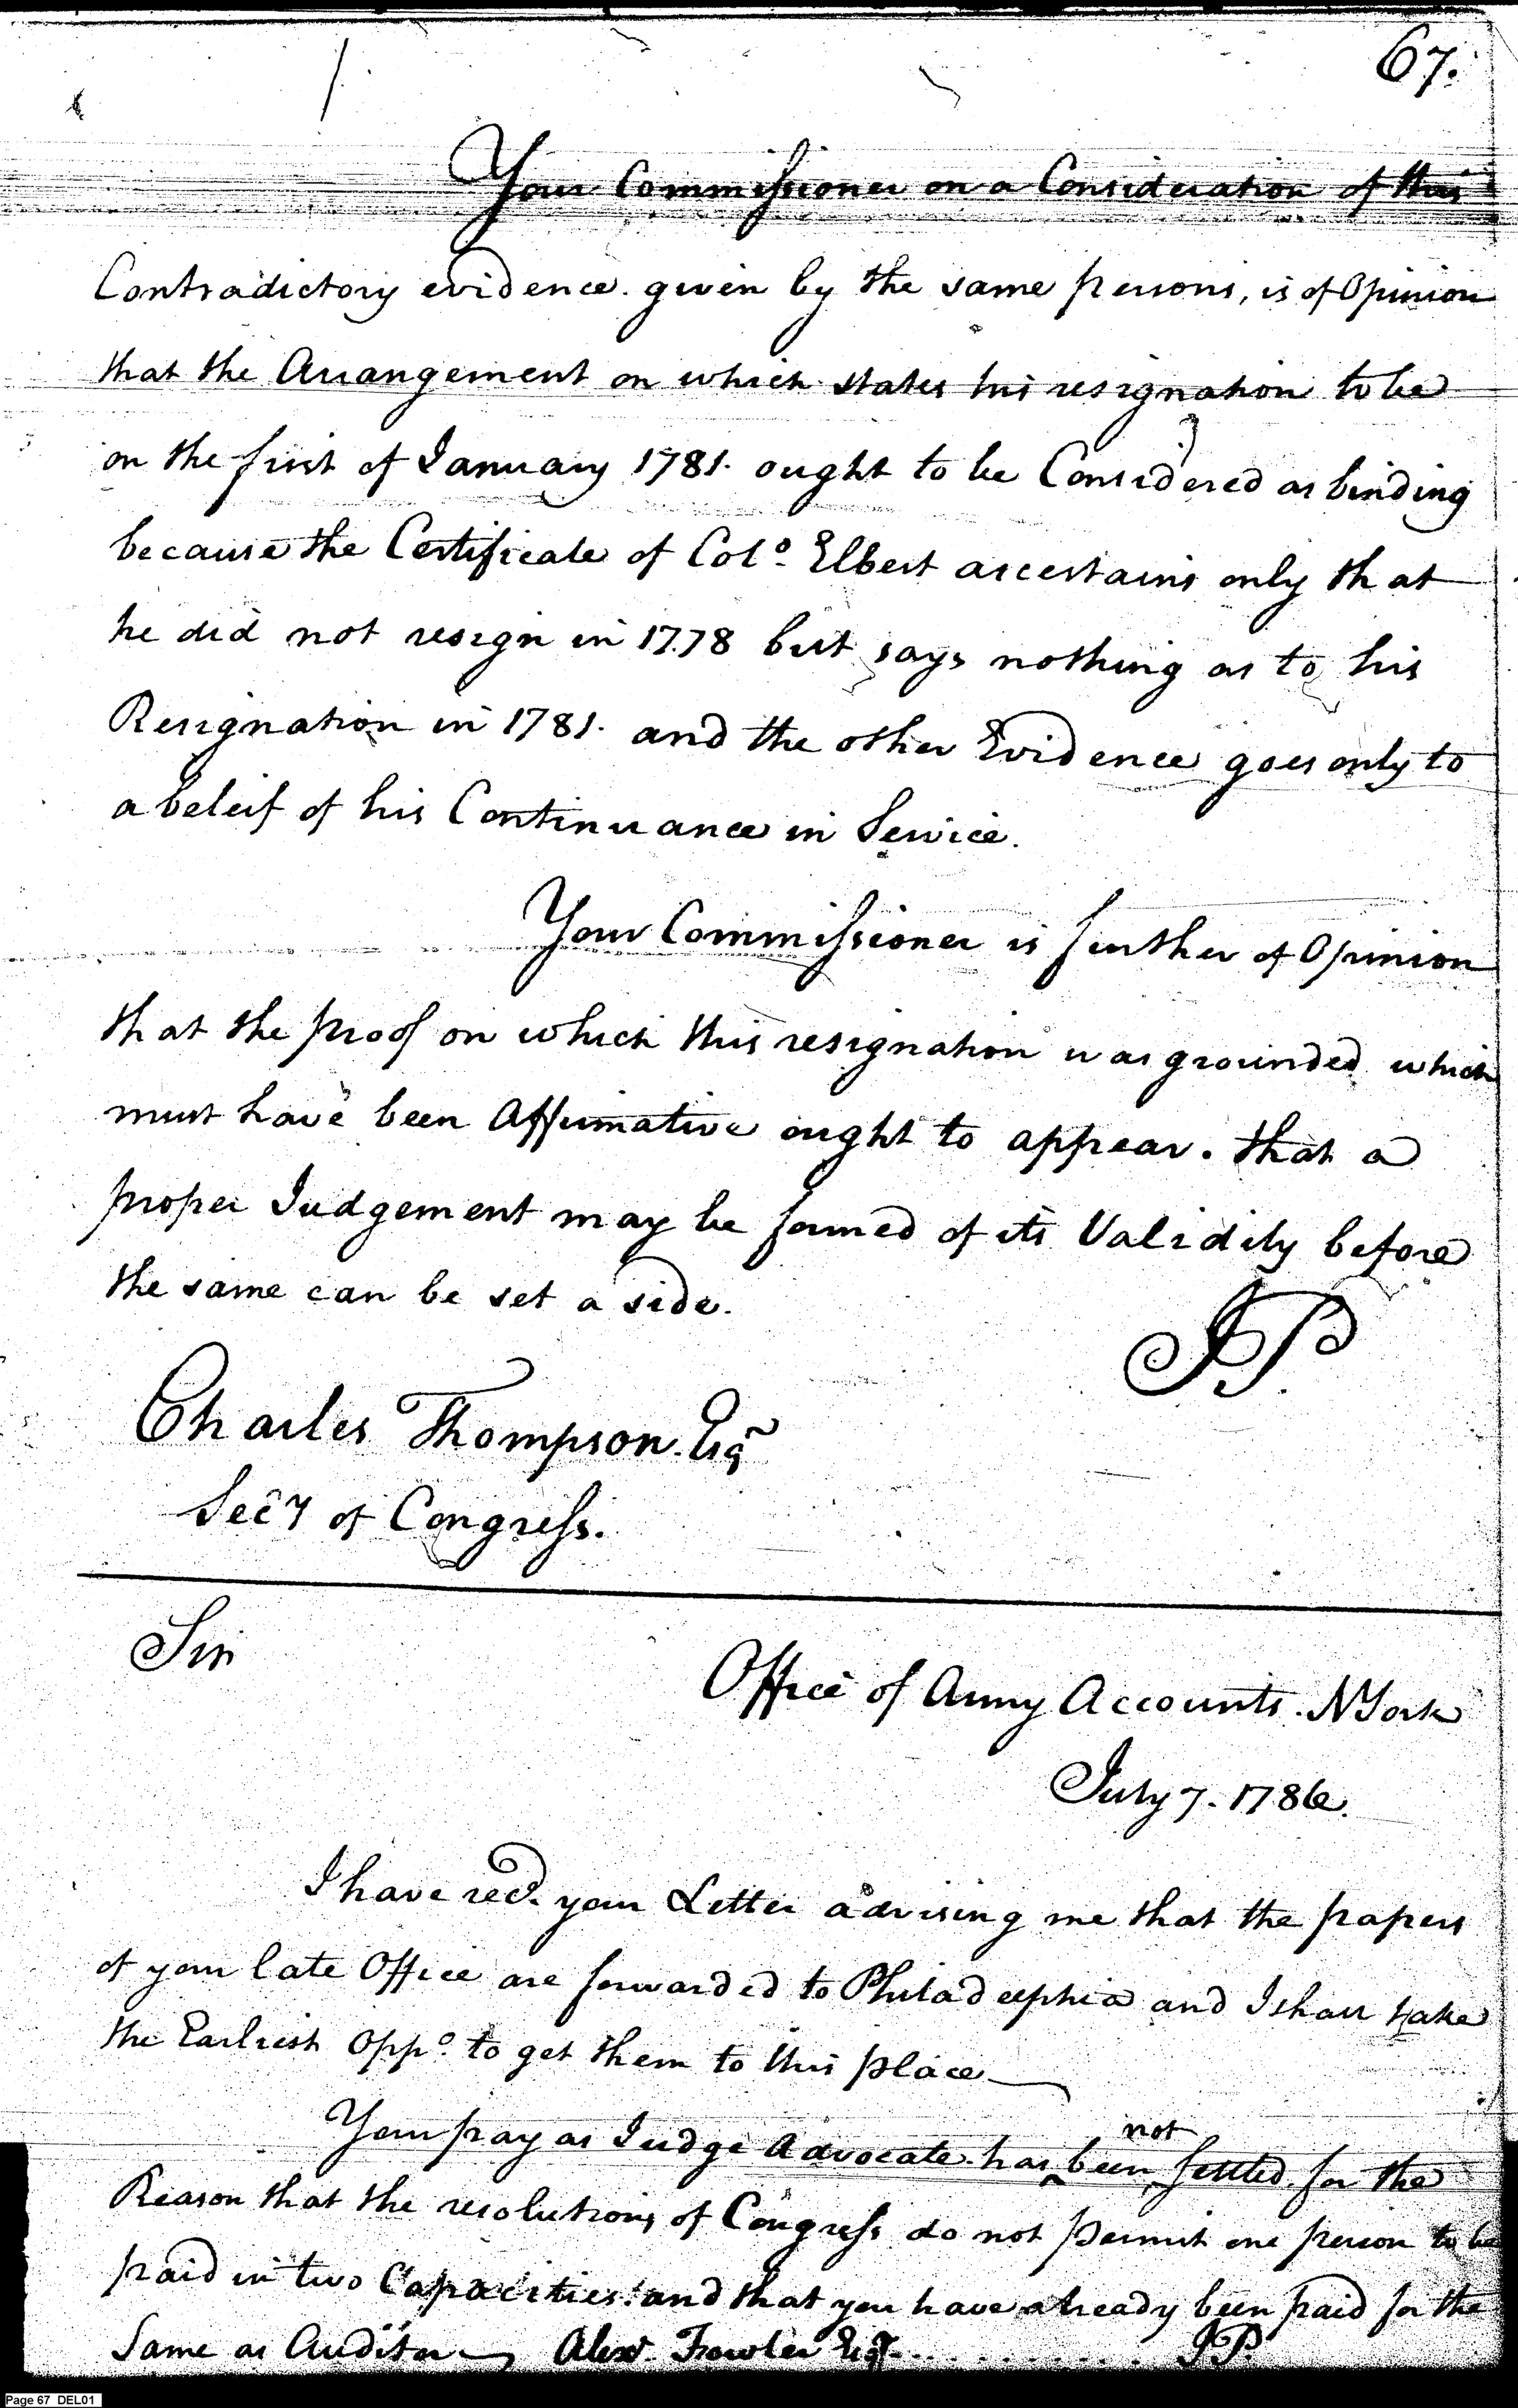 67.
Your Commissioner on a Consideration of this
Contradictory evidence given by the same persons, is of Opinion
that the Arrangement on which states his resignation to be
on the first of January 1781. ought to be Considered as binding
because the Certificate of Colo. Elbert ascertains only that
he did not resign in 1778 but says nothing as to his
Resignation in 1781. and the other Evidence goes only to
a beleif of his Continuance in Service.
Your Commissioner is further of Opinion
that the proof on which this resignation was grounded which
must have been Affirmative ought to appear. that a
proper Judgement may be formed of its Validity before
the same can be set a side.
JP.
Charles Thompson. Esqr
Secy of Congress.
Sir
Office of Army Accounts. NYork
July 7. 1786.
I have recd. your Letter advising me that the papers
of your late Office are forwarded to Philadelphia and I shall take
the Earliest Oppo. to get them to this place
Your pay as Judge Advocate has not been settled for the
Reason that the resolutions of Congress do not permit one person to be
paid in two Capacities. and that you have already been paid for the
Same as Auditor Alexr. Fowler Esqr. JP.
Page 67 DEL01